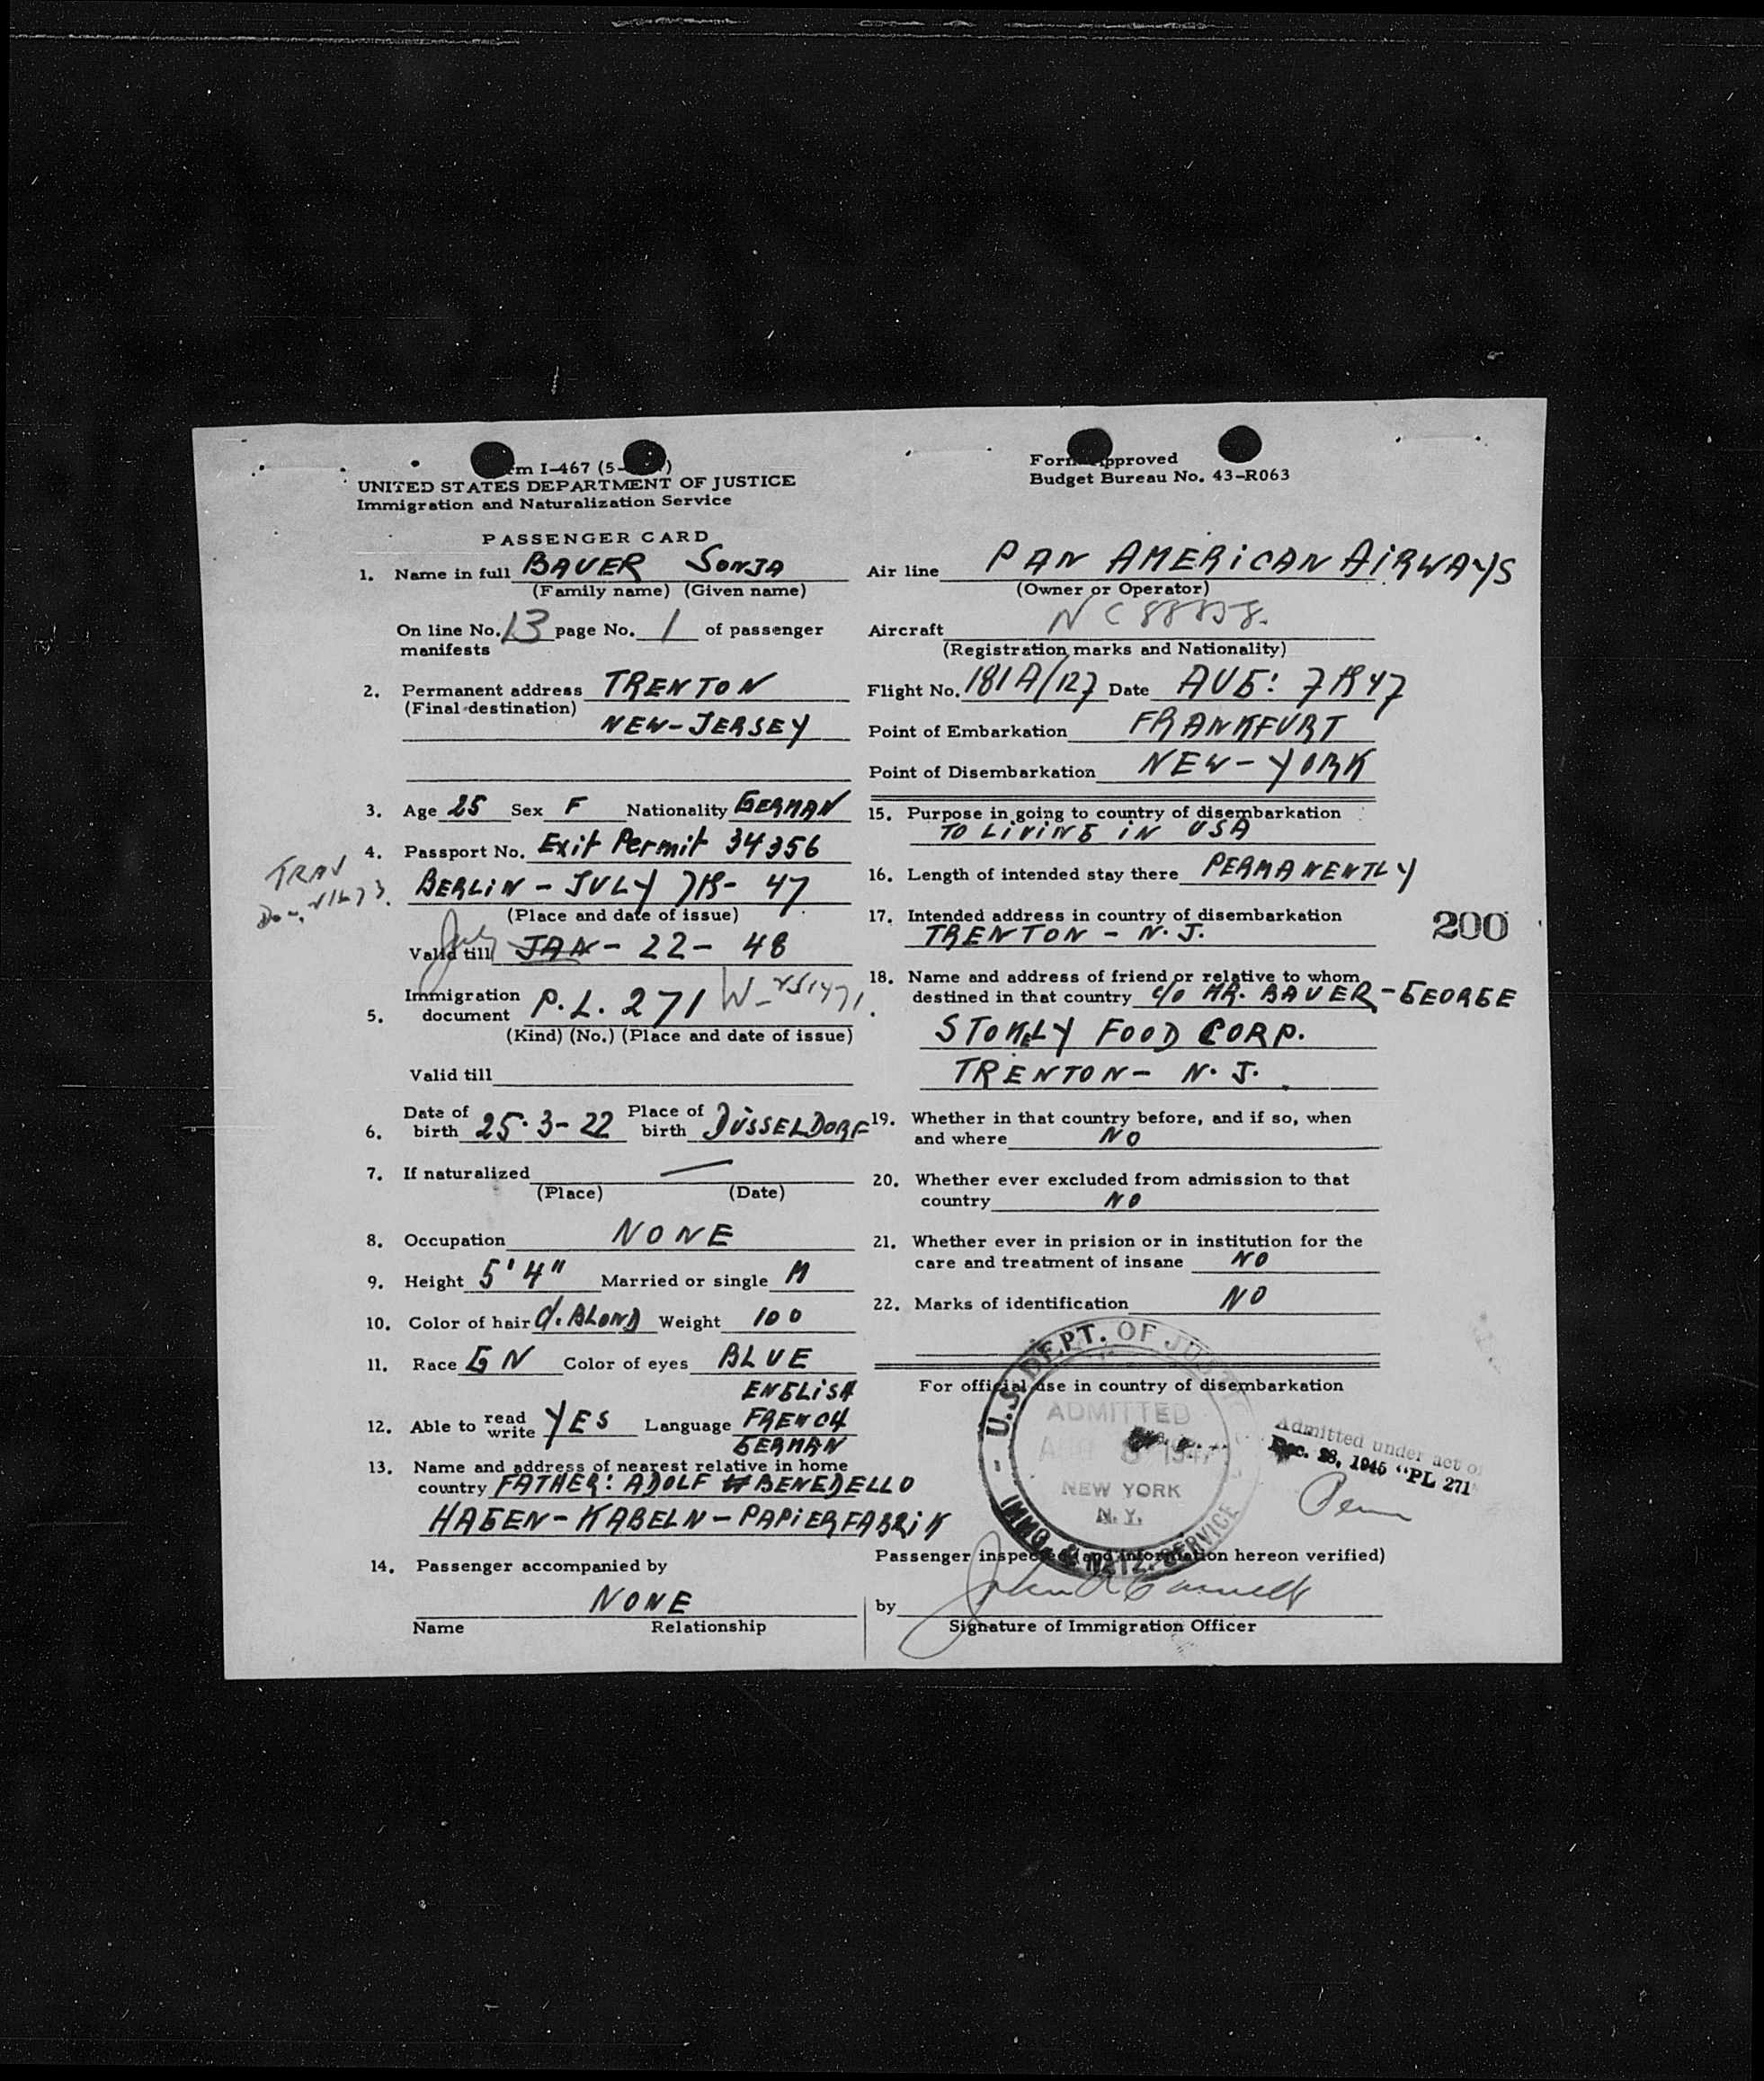 rm I-467 (5-
UNITED STATES DEPARTMENT OF JUSTICE
Immigration and Naturalization Service
PASSENGER CARD
1. Name in full BAUER SONJA
(Family name) (Given name)
On line No. 13 page No. 1 of passenger
manifests
2. Permanent address TRENTON
(Final destination)
NEW-JERSEY
3. Age 25 Sex F Nationality GERMAN
4. Passport No. Exit Permit 34356
TRAV
BERLIN - JULY - 47
(Place and date of issue)
July
Valid till JAN - 22 - 48
5. Immigration document P.L. 271
(Kind) (No.) (Place and date of issue)
Valid till
6. Date of birth 25-3-22 Place of birth DÜSSELDORF
7. If naturalized —
(Place) (Date)
8. Occupation NONE
9. Height 5'4" Married or single M
10. Color of hair d. BLOND Weight 100
11. Race GN Color of eyes BLUE
ENGLISH
12. Able to read write YES Language FRENCH
GERMAN
13. Name and address of nearest relative in home
country FATHER: ADOLF BENEDELLO
HAGEN - KABELN - PAPIERFABRIK
14. Passenger accompanied by
NONE
Name Relationship
Form Approved
Budget Bureau No. 43-R063
Air line PAN AMERICAN AIRWAYS
(Owner or Operator)
Aircraft
(Registration marks and Nationality)
Flight No. 181A/127 Date AUG:
Point of Embarkation FRANKFURT
Point of Disembarkation NEW-YORK
15. Purpose in going to country of disembarkation
TO LIVING IN USA
16. Length of intended stay there PERMANENTLY
17. Intended address in country of disembarkation
TRENTON - N.J.
200
18. Name and address of friend or relative to whom
destined in that country c/o MR. BAUER - GEORGE
STOKELY FOOD CORP.
TRENTON - N.J.
19. Whether in that country before, and if so, when
and where NO
20. Whether ever excluded from admission to that
country NO
21. Whether ever in prision or in institution for the
care and treatment of insane NO
22. Marks of identification NO
For official use in country of disembarkation
U.S. DEPT. OF JUSTICE
ADMITTED
NEW YORK
N.Y.
IMMG. & NATZ. SERVICE
Admitted under act of
Dec. 28, 1945 "PL 271"
Passenger inspected (and information hereon verified)
by
Signature of Immigration Officer